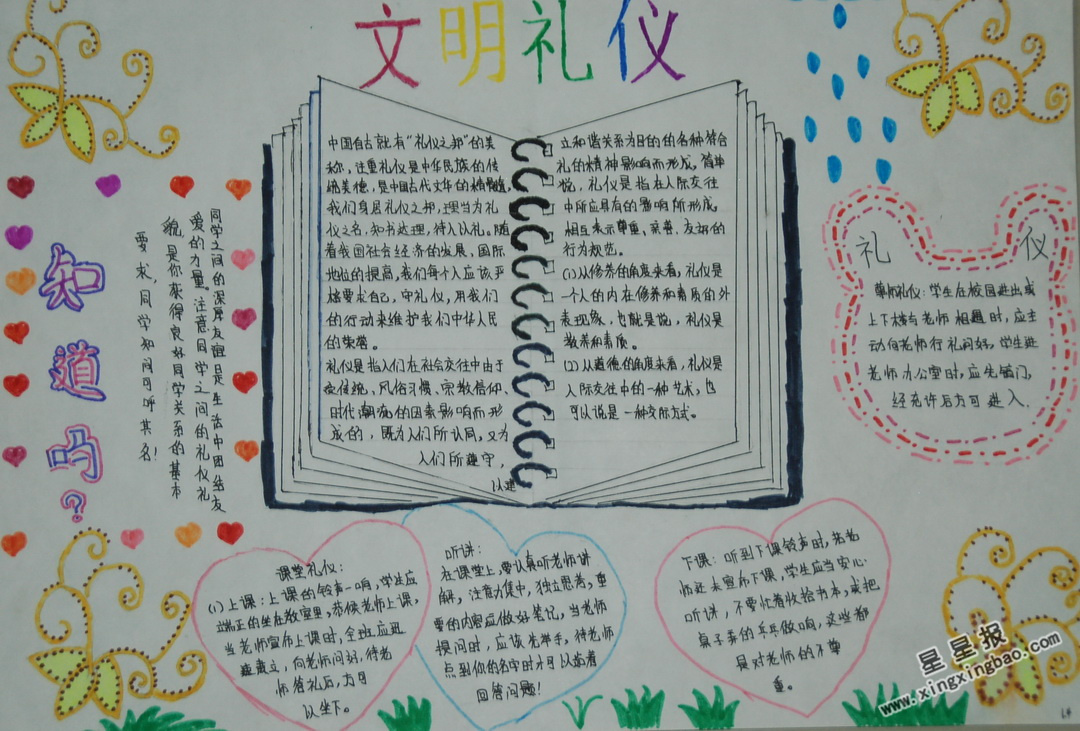 文明礼仪
中国自古就有“礼仪之邦”的美
称，注重礼仪是中华民族的传
统美德，是中国古代文年的精髓。
我们身居礼仪之邦，理当为礼
仪之名，知书达理，待人以礼。随
着我国社会经济的发展，国际
地位的提高，我们每个人应该严
格要求自己，守礼仪，用我们
的行动来维护我们中华人民
的荣誉。
礼仪是指人们在社会交往中由于
受传统、风俗习惯、宗教信仰、
时代潮流的因素影响而形
成的，既为人们所认同，又为
人们所遵守，
以建
立和谐关系为目的的各种符合
礼的精神影响而形成，简单
说，礼仪是指在人际交往
中所应具有的影响所形成
相互表示尊重、亲善、友好的
行为规范。
(1)从修养的角度来看，礼仪是
一个人的内在修养和素质的外
表现象，也就是说，礼仪是
教养和素质。
(2)从道德的角度来看，礼仪是
人际交往中的一种艺术，也
可以说是一种交际方式。
知道吗？
同学之间的深厚友谊是生活中团结友
爱的力量。注意同学之间的礼仪礼
貌，是你获得良好同学关系的基本
要求，同学知间可呼其名！
礼仪
尊师礼仪：学生在校园进出或
上下楼与老师相遇时，应主
动向老师行礼问好，学生进
老师办公室时，应先敲门，
经允许后方可进入．
课堂礼仪：
(1)上课：上课的铃声一响，学生应
端正的坐在教室里，恭候老师上课，
当老师宣布上课时，全班应迅
速肃立，向老师问好，待老
师答礼后，方可
以坐下。
听讲：
在课堂上，要认真听老师讲
解，注意力集中，独立思考，重
要的内容应做好笔记，当老师
提问时，应该先举手，待老师
点到你的名字时才可以站着
回答问题！
下课：听到下课铃声时，若老
师还未宣布下课，学生应当安心
听讲，不要忙着收拾书本，或把
桌子弄的乒乓做响，这些都
是对老师的不尊
重。
星星报
www.xingxingbao.com